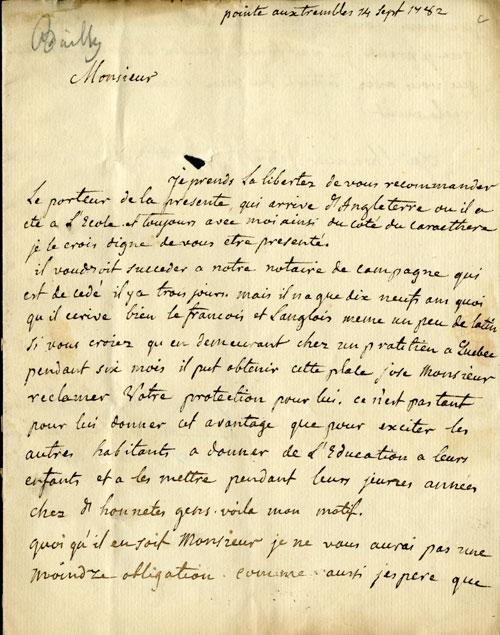 pointe aux trembles 14 Sept 1782
Bailly
Monsieur
Je prends La libertez de vous recommander
Le porteur de la presente qui arrive d'Angleterre ou il a
ete a L'Ecole et toujours avec moi ainsi du coté du caracthere
je le crois digne de vous etre presenté.
il voudroit succeder a notre notaire de campagne qui
est de cedé il y a trois jours mais il na que dix neufs ans quoi
qu'il ecrive bien le francois et Langlois meme un peu de latin
Si vous croiez qu en demeurant chez un pratitien a Quebec
pendant six mois il put obtenir cette place jose Monsieur
reclamer Votre protection pour lui. ce n'est pas tant
pour lui donner cet avantage que pour exciter les
autres habitants a donner de L'Education a leurs
enfants et a les mettre pendant leurs jeunes années
chez d'honnetes gens. voila mon motif.
quoi qu'il en soit Monsieur je ne vous aurai pas une
moindre obligation. comme aussi j'espere que